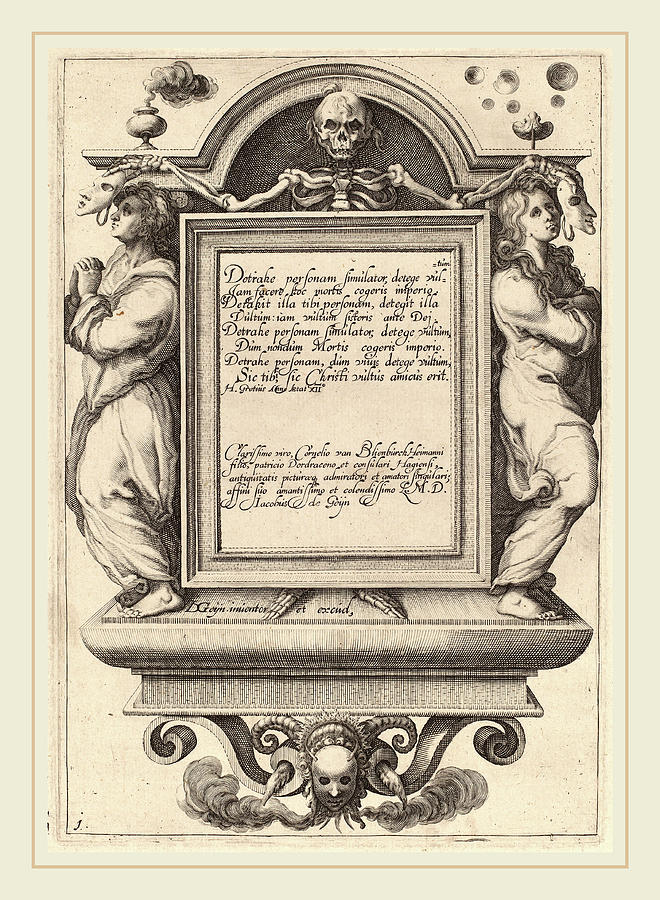 -tum
Detrahe personam simulator, detege vul-
Jam facere hoc mortis cogeris imperio.
Detrahit illa tibi personam, detegit illa
Vultum: iam vultum sisteris ante Dei
Detrahe personam simulator, detege vultum,
Dum nondum Mortis cogeris imperio.
Detrahe personam, dum vivis detege vultum,
Sic tibi sic Christi vultus amicus erit.
H. Grotius Anno aetat XII
Clarissimo viro, Cornelio van Blienburch Heimanni
filio, patricio Dordraceno, et consulari Hagiensi,
antiquitatis picturaeq, admiratori et amatori singulari;
affini suo amantissimo et colendissimo L. M. D.
Iacobus de Geijn
DGeijn inventor et excud,
1.